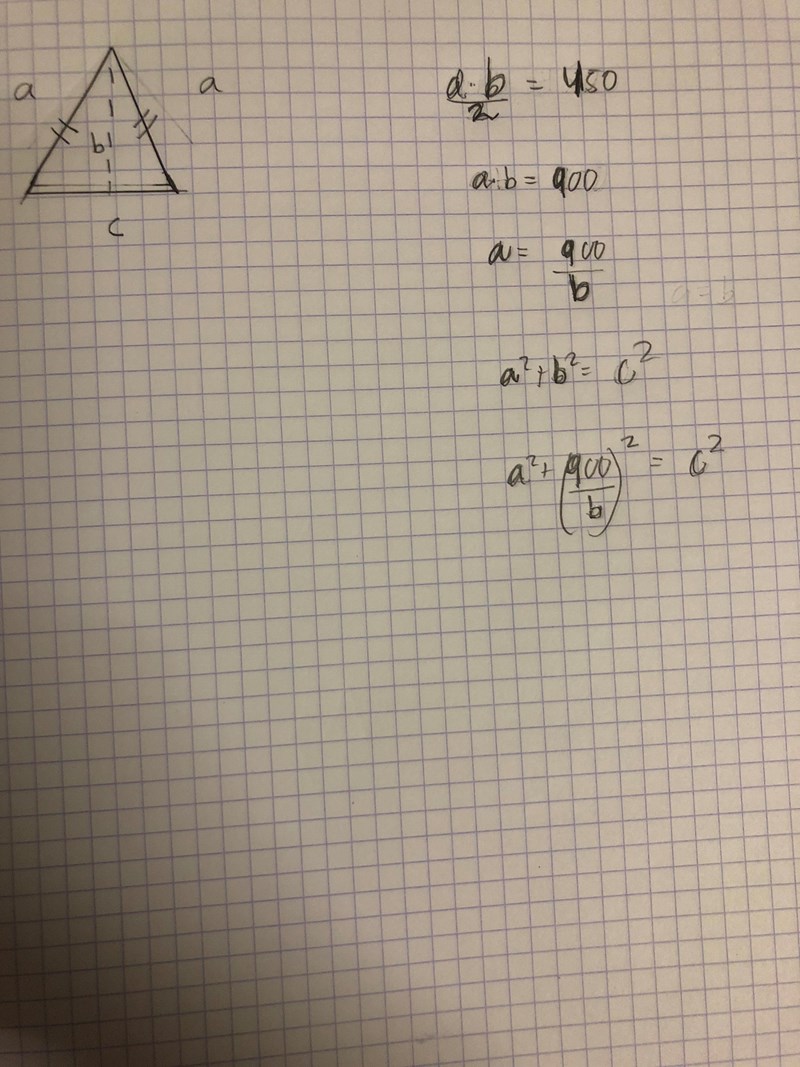 a
a
b
c
a·b/2 = 450
a·b = 900
a = 900/b
a=b
a² + b² = c²
a² + (900/b)² = c²